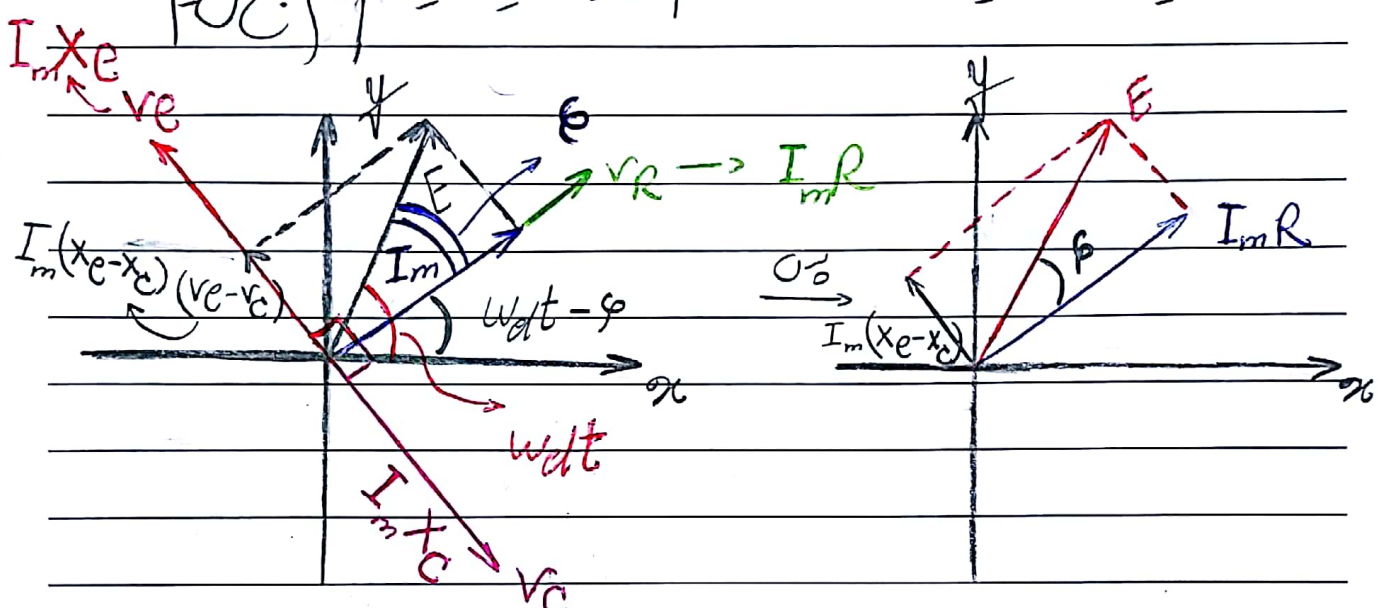 I_m X_e
v_e
y
φ
v_R → I_m R
E
I_m
I_m(X_e-X_c) (v_e-v_c)
ω_d t - φ
x
ω_d t
I_m X_c
v_c
y
E
I_m R
φ
I_m(X_e-X_c)
x